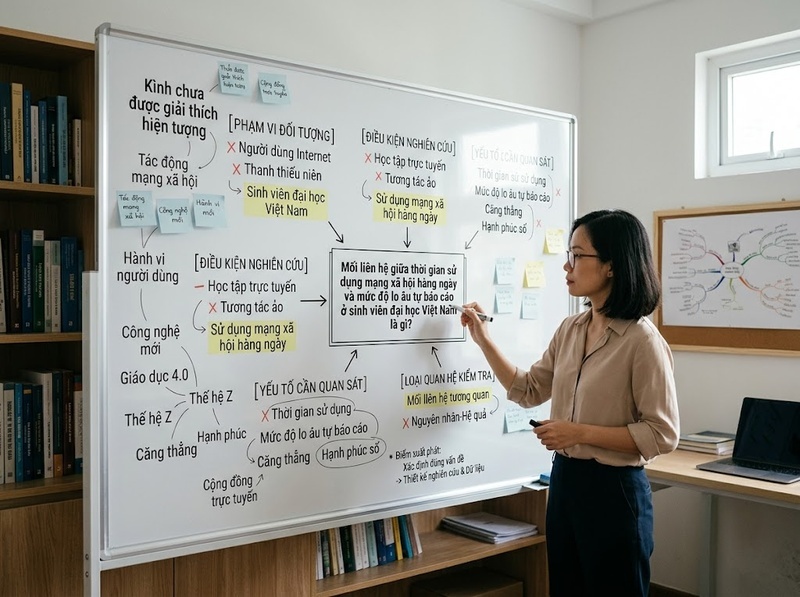 Kình chưa
được giải thích
hiện tượng
Tác động
mạng xã hội
Tác động
mạng
xã hội
Công nghệ
mới
Hành vi
mới
Hành vi
người dùng
Công nghệ
mới
Giáo dục 4.0
Thế hệ Z
Thế hệ Z
Hạnh phúc
Căng thẳng
Cộng đồng
trực tuyến
[PHẠM VI ĐỐI TƯỢNG]
✗ Người dùng Internet
✗ Thanh thiếu niên
Sinh viên đại học
Việt Nam
[ĐIỀU KIỆN NGHIÊN CỨU]
✗ Học tập trực tuyến
✗ Tương tác ảo
Sử dụng mạng xã
hội hàng ngày
[YẾU TỐ CẦN QUAN SÁT]
Thời gian sử dụng
Mức độ lo âu tự báo cáo
Căng thẳng
Hạnh phúc số
[ĐIỀU KIỆN NGHIÊN CỨU]
– Học tập trực tuyến
✗ Tương tác ảo
Sử dụng mạng xã
hội hàng ngày
Mối liên hệ giữa thời gian sử
dụng mạng xã hội hàng ngày
và mức độ lo âu tự báo cáo
ở sinh viên đại học Việt Nam
là gì?
[YẾU TỐ CẦN QUAN SÁT]
✗ Thời gian sử dụng
Mức độ lo âu tự báo cáo
Căng thẳng
Hạnh phúc số
[LOẠI QUAN HỆ KIỂM TRA]
Mối liên hệ tương quan
✗ Nguyên nhân-Hệ quả
• Điểm xuất phát:
Xác định đúng vấn đề
→ Thiết kế nghiên cứu & Dữ liệu